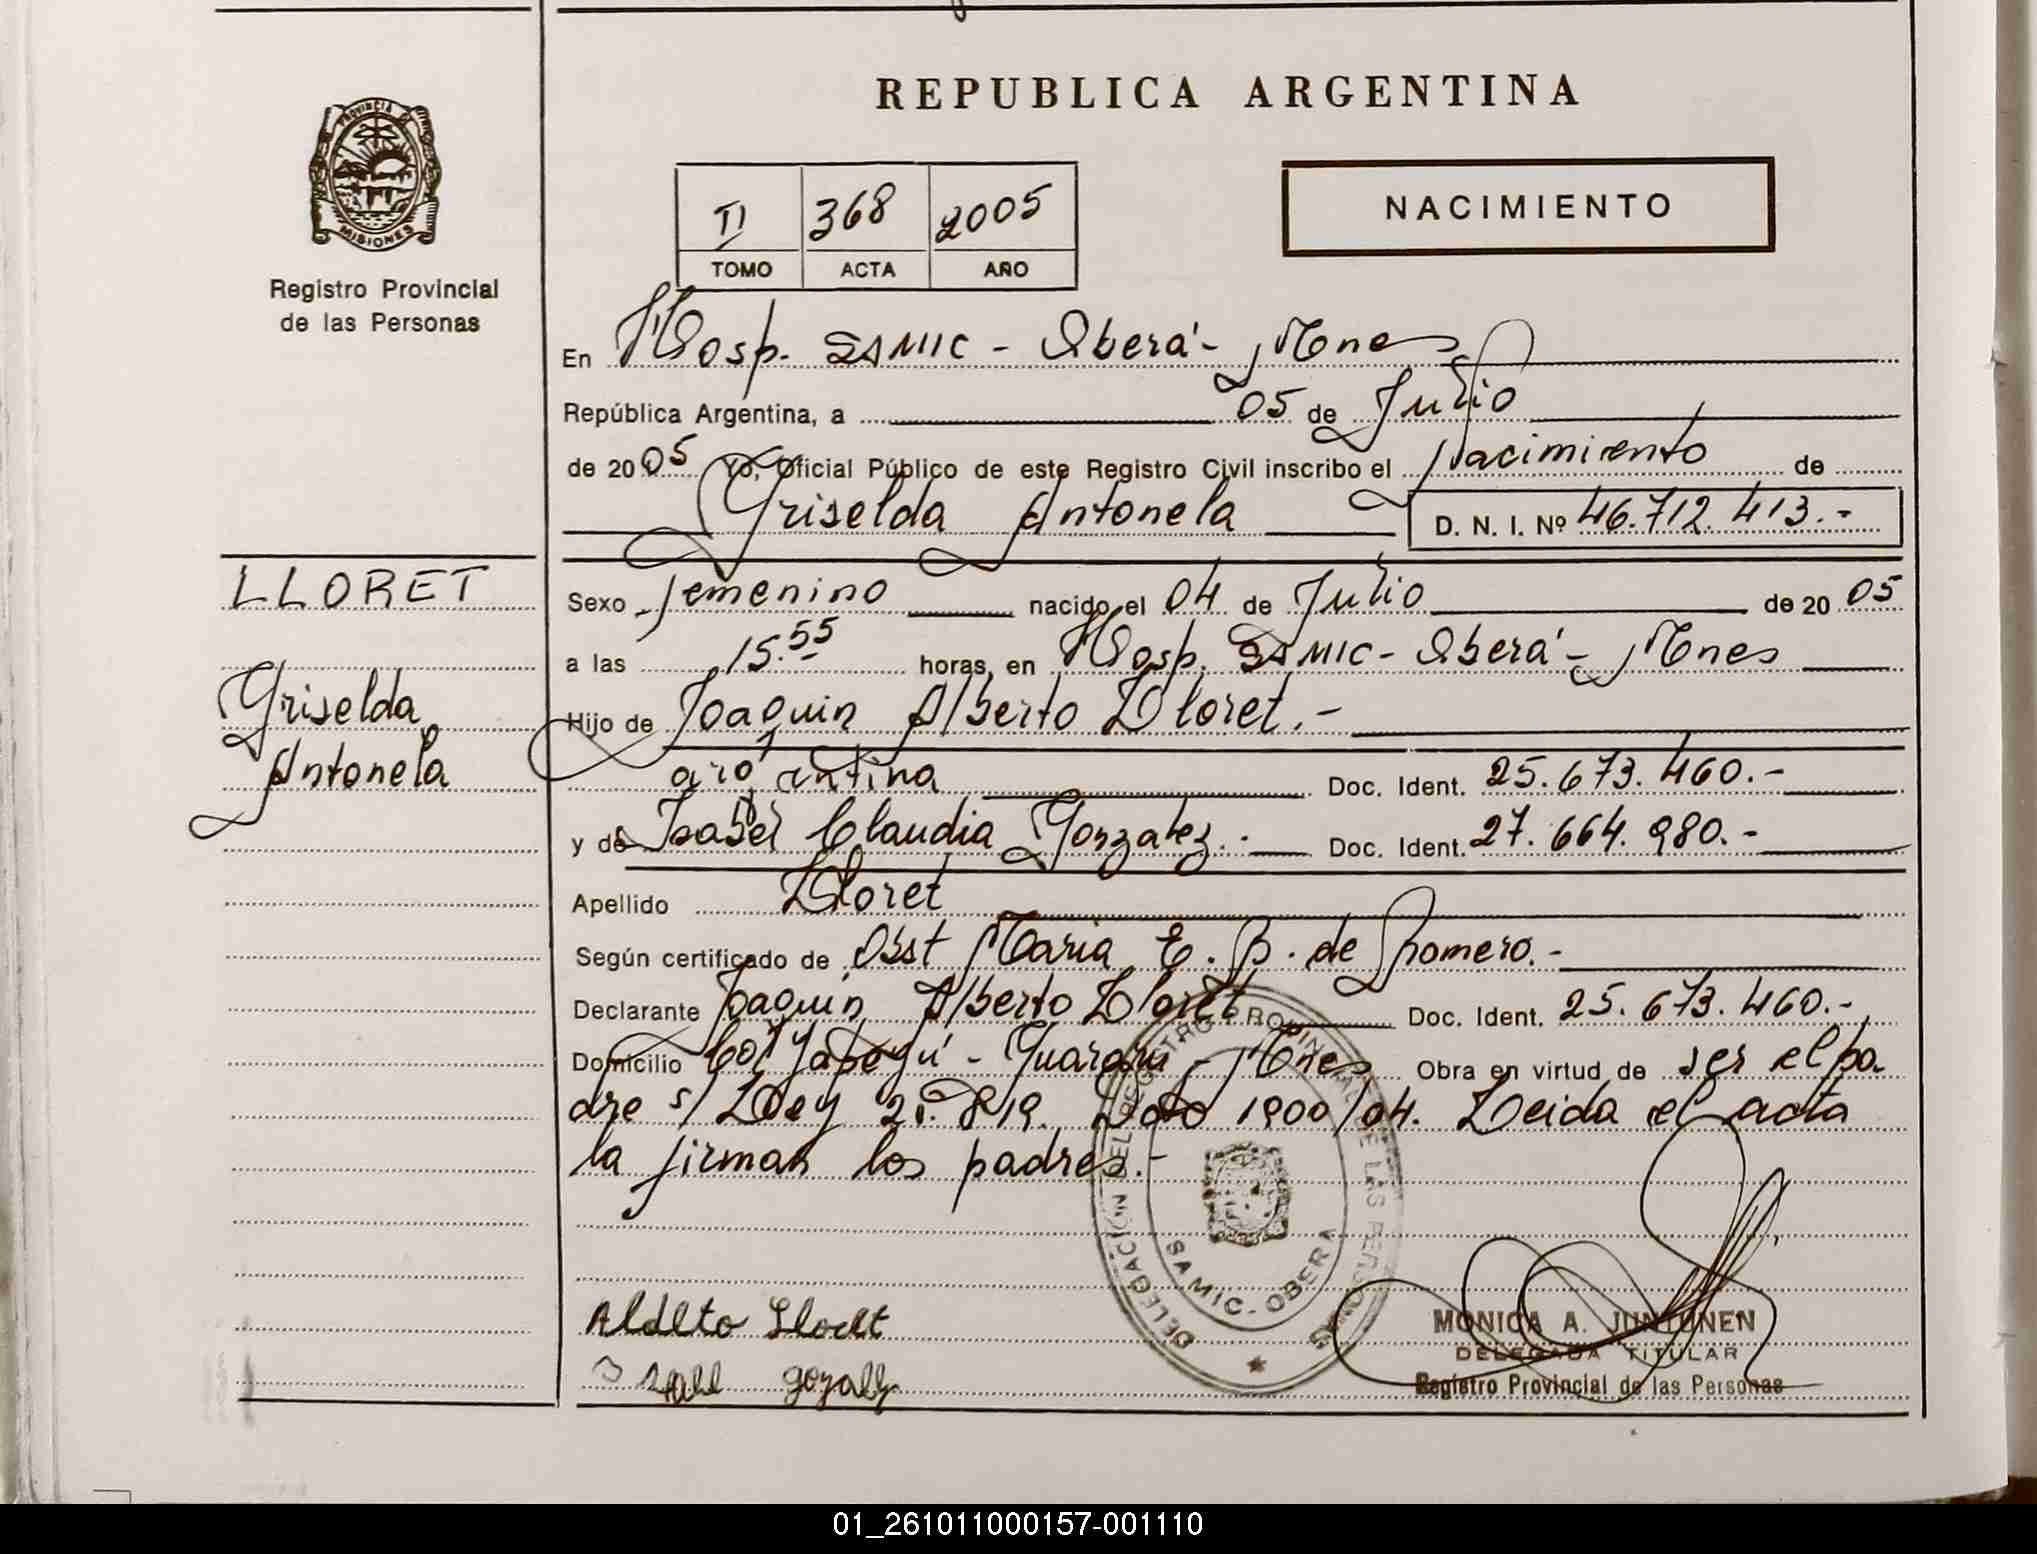 REPUBLICA ARGENTINA
PROVINCIA DE
MISIONES
Registro Provincial
de las Personas
II 368 2005
TOMO ACTA AÑO
NACIMIENTO
En Hosp. SAMIC - Oberá - Mnes
República Argentina, a 05 de Julio
de 2005 Yo, Oficial Público de este Registro Civil inscribo el nacimiento de
Griselda Antonela D. N. I. Nº 46.712.413.-
LLORET
Griselda
Antonela
Sexo femenino nacido el 04 de Julio de 2005
a las 15.55 horas, en Hosp. SAMIC - Oberá - Mnes
Hijo de Joaquin Alberto Lloret.-
argentina Doc. Ident. 25.673.460.-
y de Isabel Claudia Gonzalez.- Doc. Ident. 27.664.980.-
Apellido Lloret
Según certificado de Obst Maria E. B. de Romero.-
Declarante Joaquin Alberto Lloret Doc. Ident. 25.673.460.-
Domicilio Col Yapeyú - Guaraní - Mnes Obra en virtud de ser el pa-
dre s/ Ley 21.819. Dcto 1900/04. Leida el acta
la firman los padres.-
DELEGACION DEL REGISTRO PROVINCIAL DE LAS PERSONAS
SAMIC - OBERA
Lloret
MONICA A. JUNTUNEN
DELEGADA TITULAR
Registro Provincial de las Personas
01_261011000157-001110